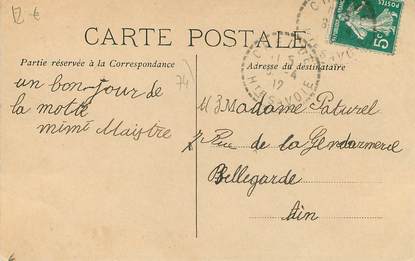 12 €
CARTE POSTALE
Partie réservée à la Correspondance
Adresse du destinataire
74
un bon-jour de
la motte
mimi Maistre
Madame Paturel
Rue de la Gendarmerie
Bellegarde
Ain
Hte SAVOIE
12
5c